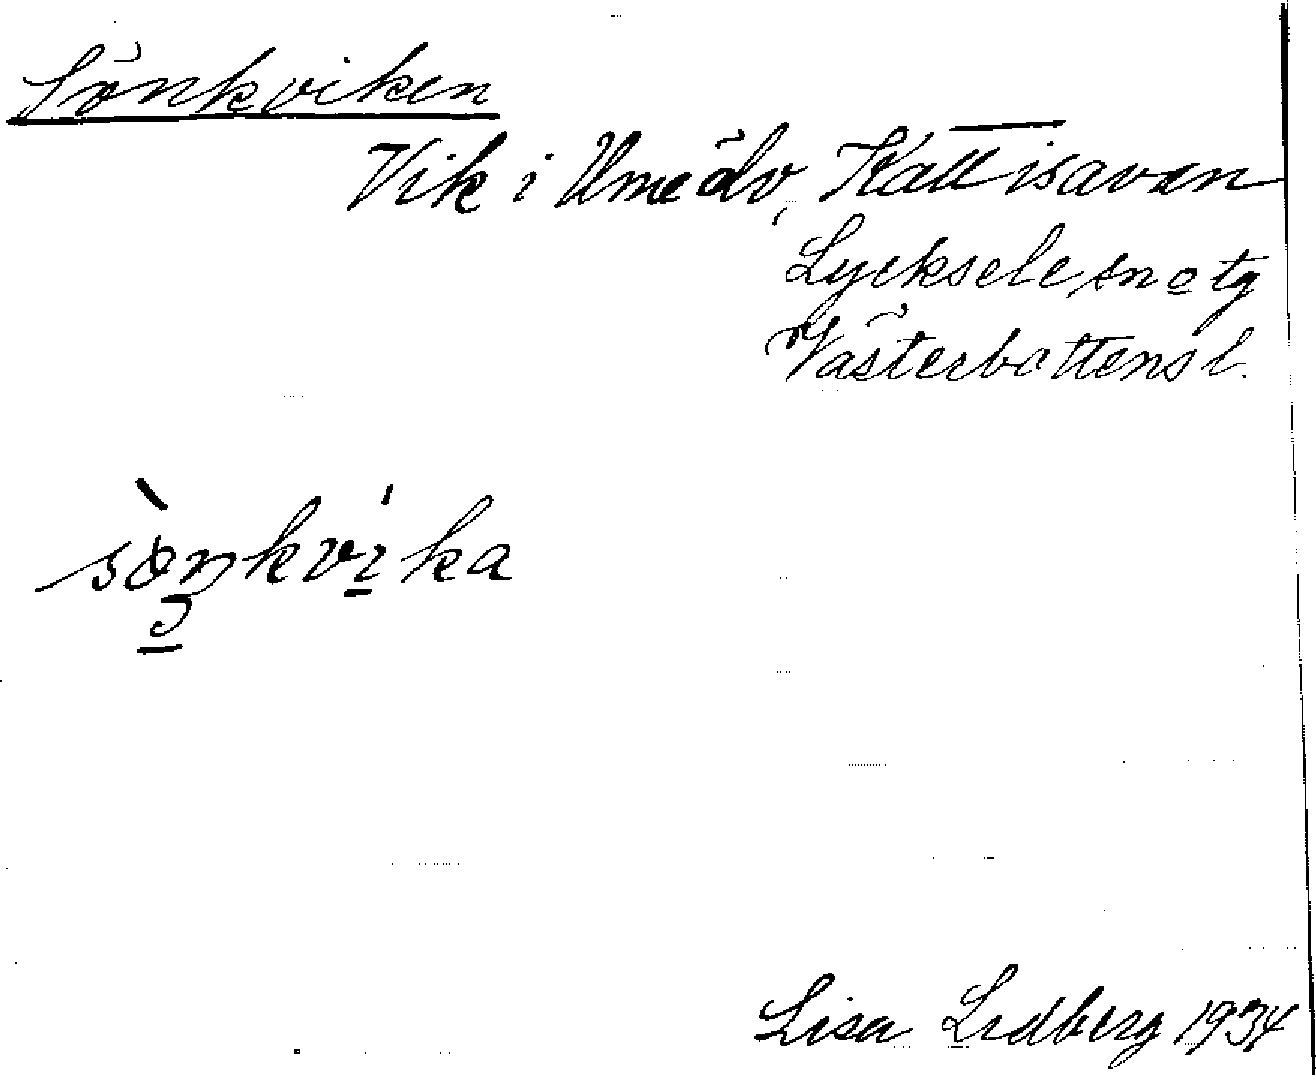 Sönkviken
Vik i Umeälv, Kattisavan
Lycksele sn o tg
Västerbottens l.
sò̱ŋkvi̱ka
Lisa Lidberg 1934